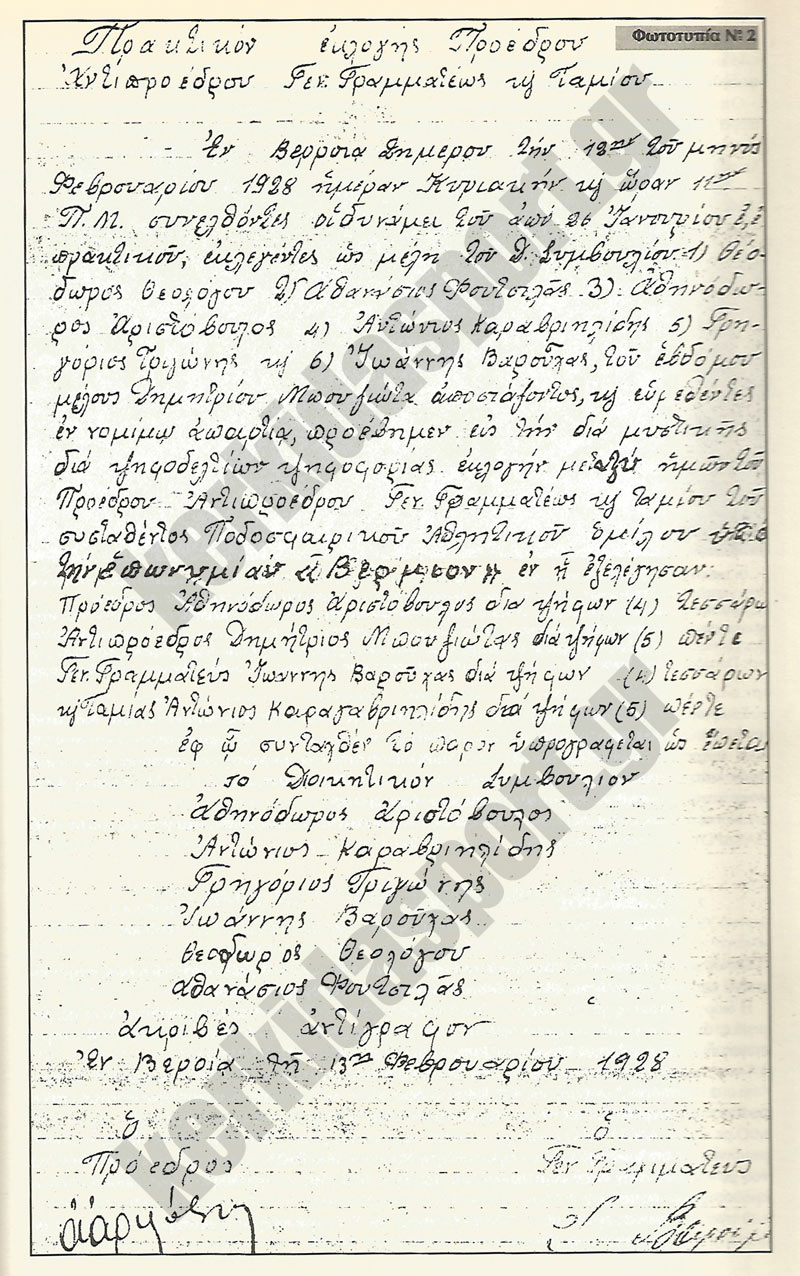 Φωτοτυπία Νº 2
Πρακτικόν ἐκλογῆς Προέδρου
Ἀντιπροέδρου Γεν. Γραμματέως κ Ταμίου
Ἐν Βερροία σήμερον τήν 12ην τοῦ μηνός
Φεβρουαρίου 1928 ἡμέραν Κυριακήν κ ὥραν 11ην
Π.Μ. συνελθόντες οἱ δυνάμει τοῦ ἀπό 26 Ἰανουαρίου ἐ.ἐ
πρακτικοῦ, ἐκλεγέντες ὡς μέλη τοῦ Δ. Συμβουλίου 1) Θεό-
δωρος Θεολόγου 2) Ἀθανάσιος Φουτσιλᾶς 3) Ἀθηνόδω-
ρος Ἀριστόβουλος 4) Ἀντώνιος Καραβριηλίδης 5) Γρη-
γόριος Τριγώνης κ 6) Ἰωάννης Βαρούχας, τοῦ ἑβδόμου
μέλους Δημητρίου Μπουζιώτα ἀποστάζοντος, κ εὑρεθέντες
ἐν νομίμῳ ἀπαρτία, προέβημεν εἰς τήν διά μυστικῆς
διά ψηφοδελτίων ψηφοφορίας ἐκλογήν μεταξύ ἡμῶν τοῦ
Προέδρου Ἀντιπροέδρου Γεν. Γραμματέως κ ταμίου τοῦ
συσταθέντος Ποδοσφαιρικοῦ Ἀθλητικοῦ ὁμίλου ὑπό
τήν ἐπωνυμίαν «Βέρμιον» ἐν ᾗ ἐξελέγησαν:
Πρόεδρος Ἀθηνόδωρος Ἀριστόβουλος διά ψήφων (4) τεσσάρω
Ἀντιπρόεδρος Δημήτριος Μπουζιώτας διά ψήφων (5) πέντε
Γεν. Γραμματεύς Ἰωάννης Βαρούχας διά ψήφων (4) τεσσάρων
κ Ταμίας Ἀντώνιος Καραγαβριηλίδης διά ψήφων (5) πέντε
ἐφ ᾧ συνταχθέν τό παρόν ὑπογράφεται ὡς ἕπεται
τό Διοικητικόν Συμβούλιον
Ἀθηνόδωρος Ἀριστόβουλος
Ἀντώνιος Καραβριηλίδης
Γρηγόριος Τριγώνης
Ἰωάννης Βαρούχας
Θεόδωρος Θεολόγου
Ἀθανάσιος Φουτσιλᾶς
ἀκριβές ἀντίγραφον
Ἐν Βεροία τῇ 13ῃ Φεβρουαρίου 1928
Ὁ ὁ
Πρόεδρος Γεν Γραμματεύς
kerkidasport.gr
kerkidasport.gr